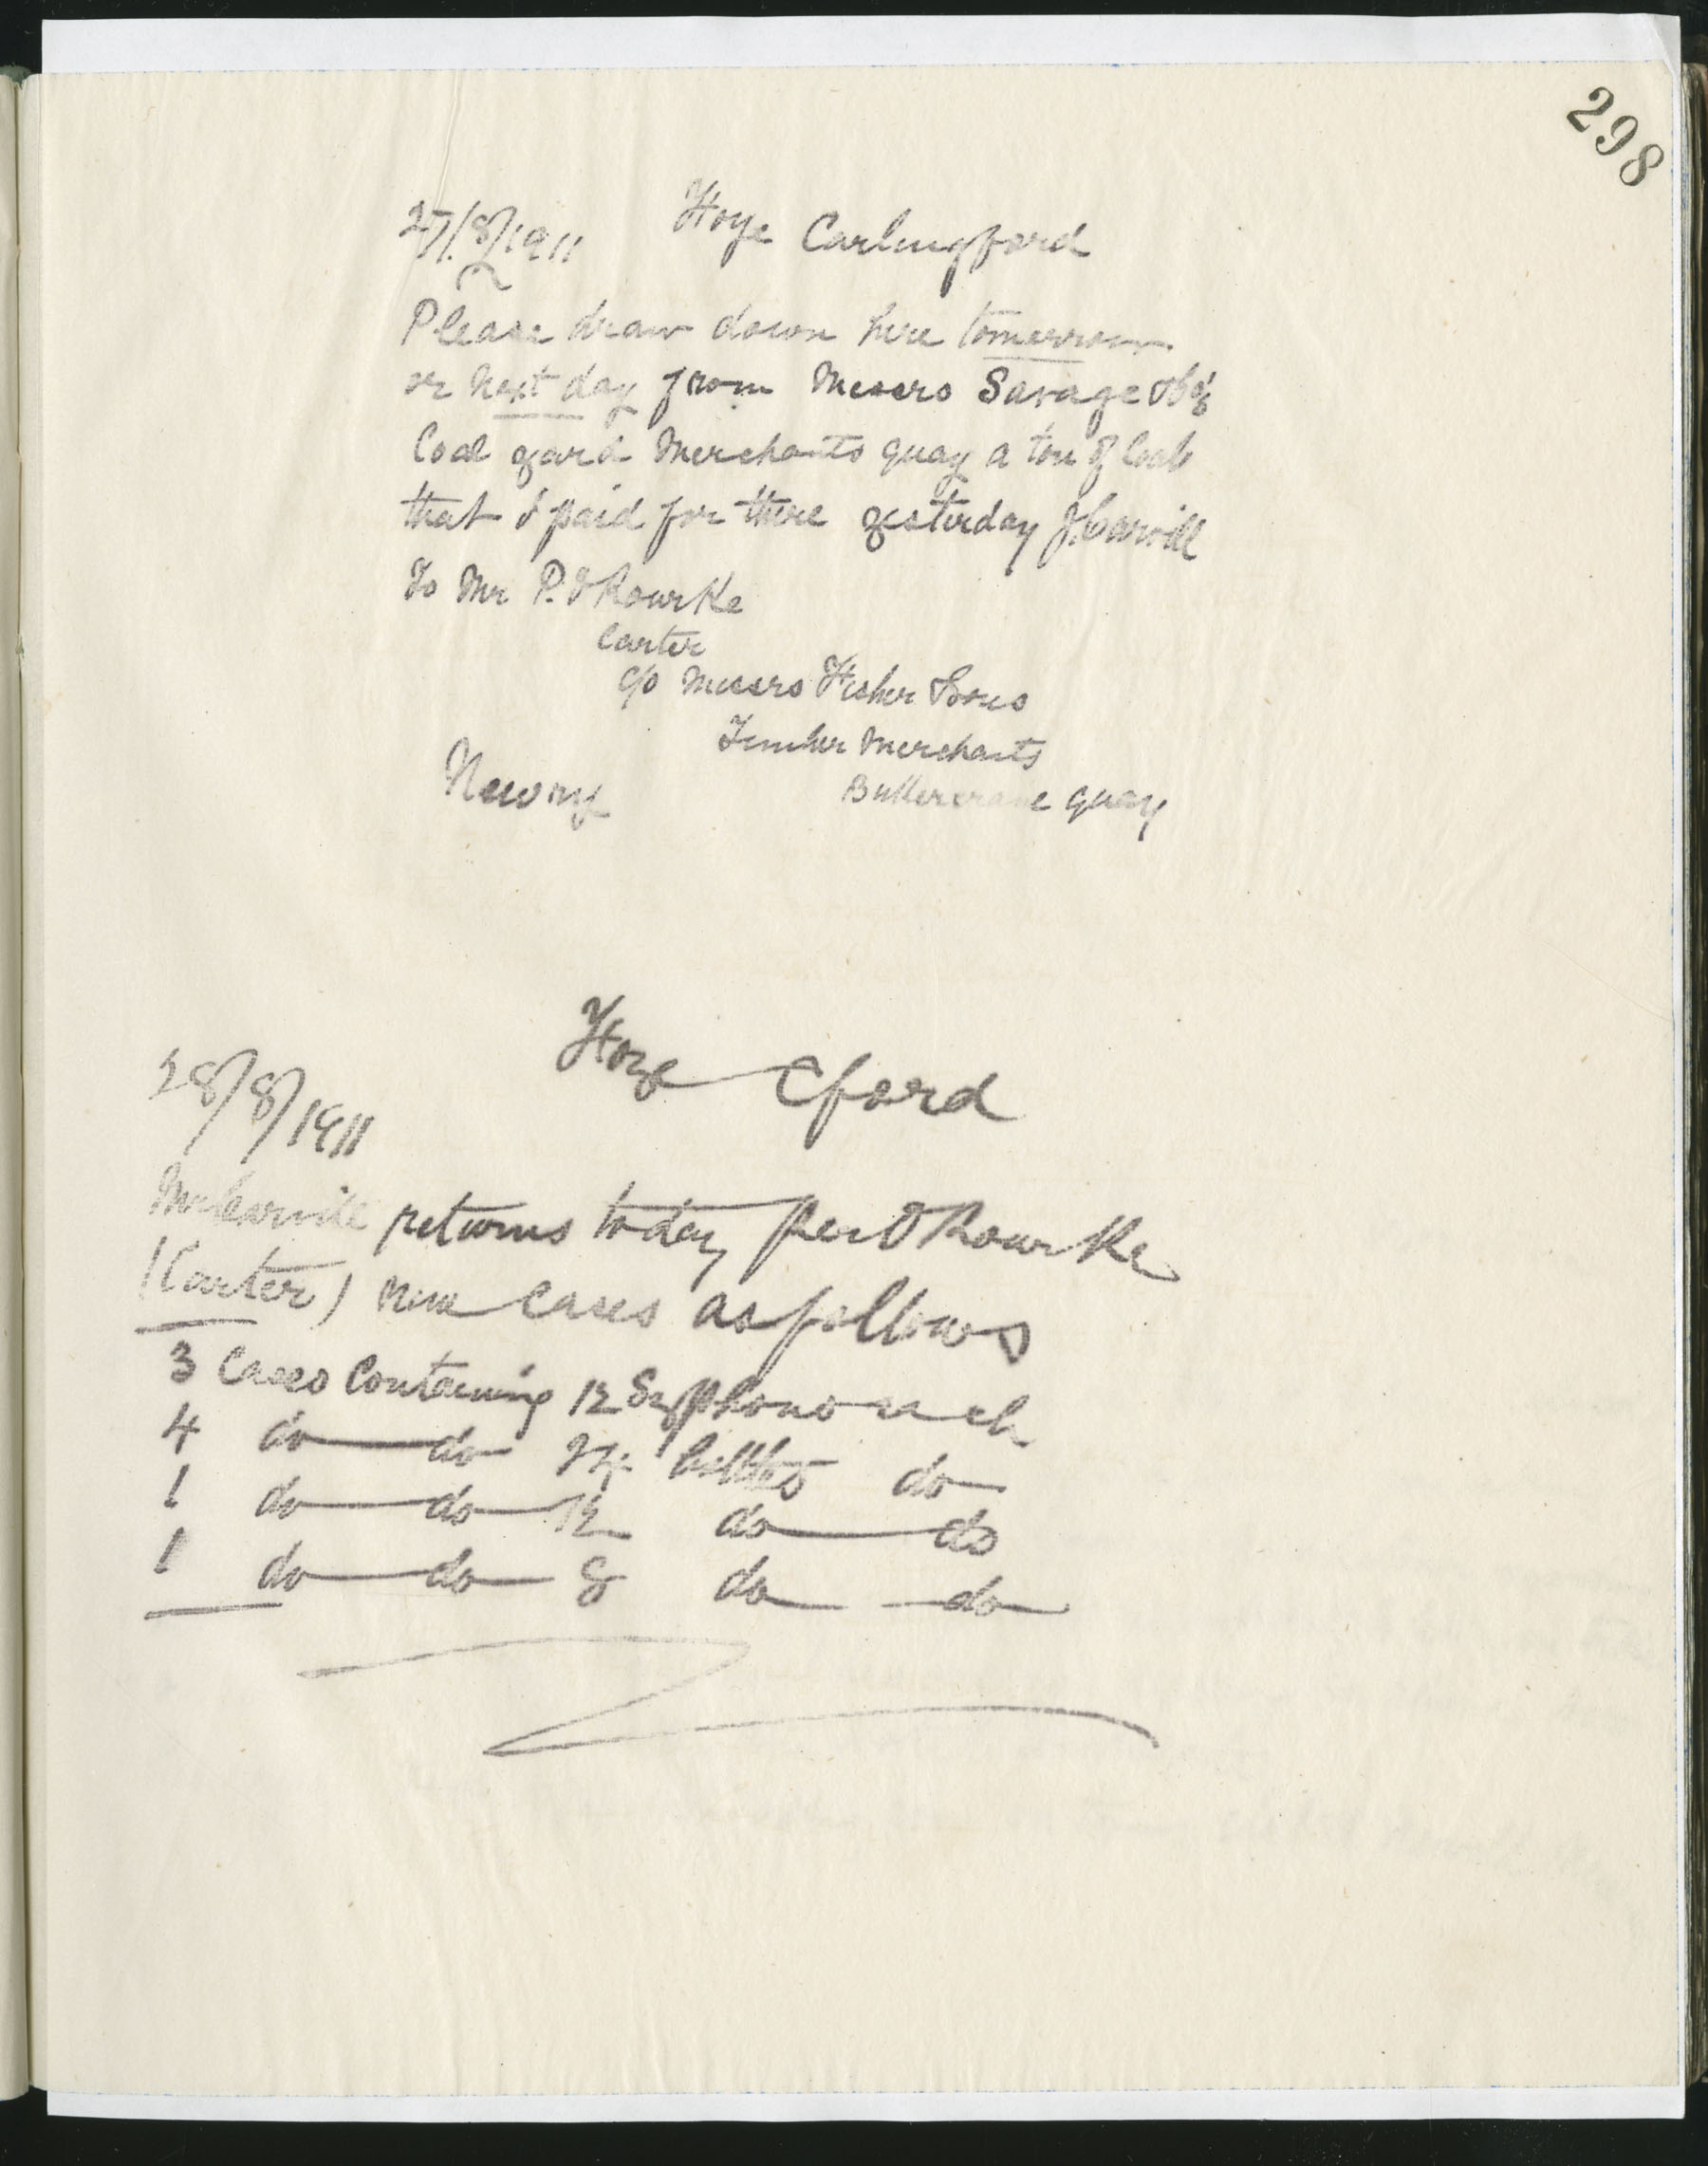 298
27/8/1911 Hoye Carlingford
Please draw down here tomorrow
or next day from Messrs Savage & Co's
Coal yard Merchants quay a ton of Coals
that I paid for there yesterday J. Carvill
To Mr P. O Rourke
Carter
c/o Messrs Fisher & Sons
Timber Merchants
Buttercrane quay
Newry
Hoye Cford
28/8/1911
Mr Carvill returns today per O Rourke
(Carter) nine Cases as follows
3 Cases Containing 12 Syphons each
4 do do 24 bottles do
1 do do 12 do do
1 do do 8 do do